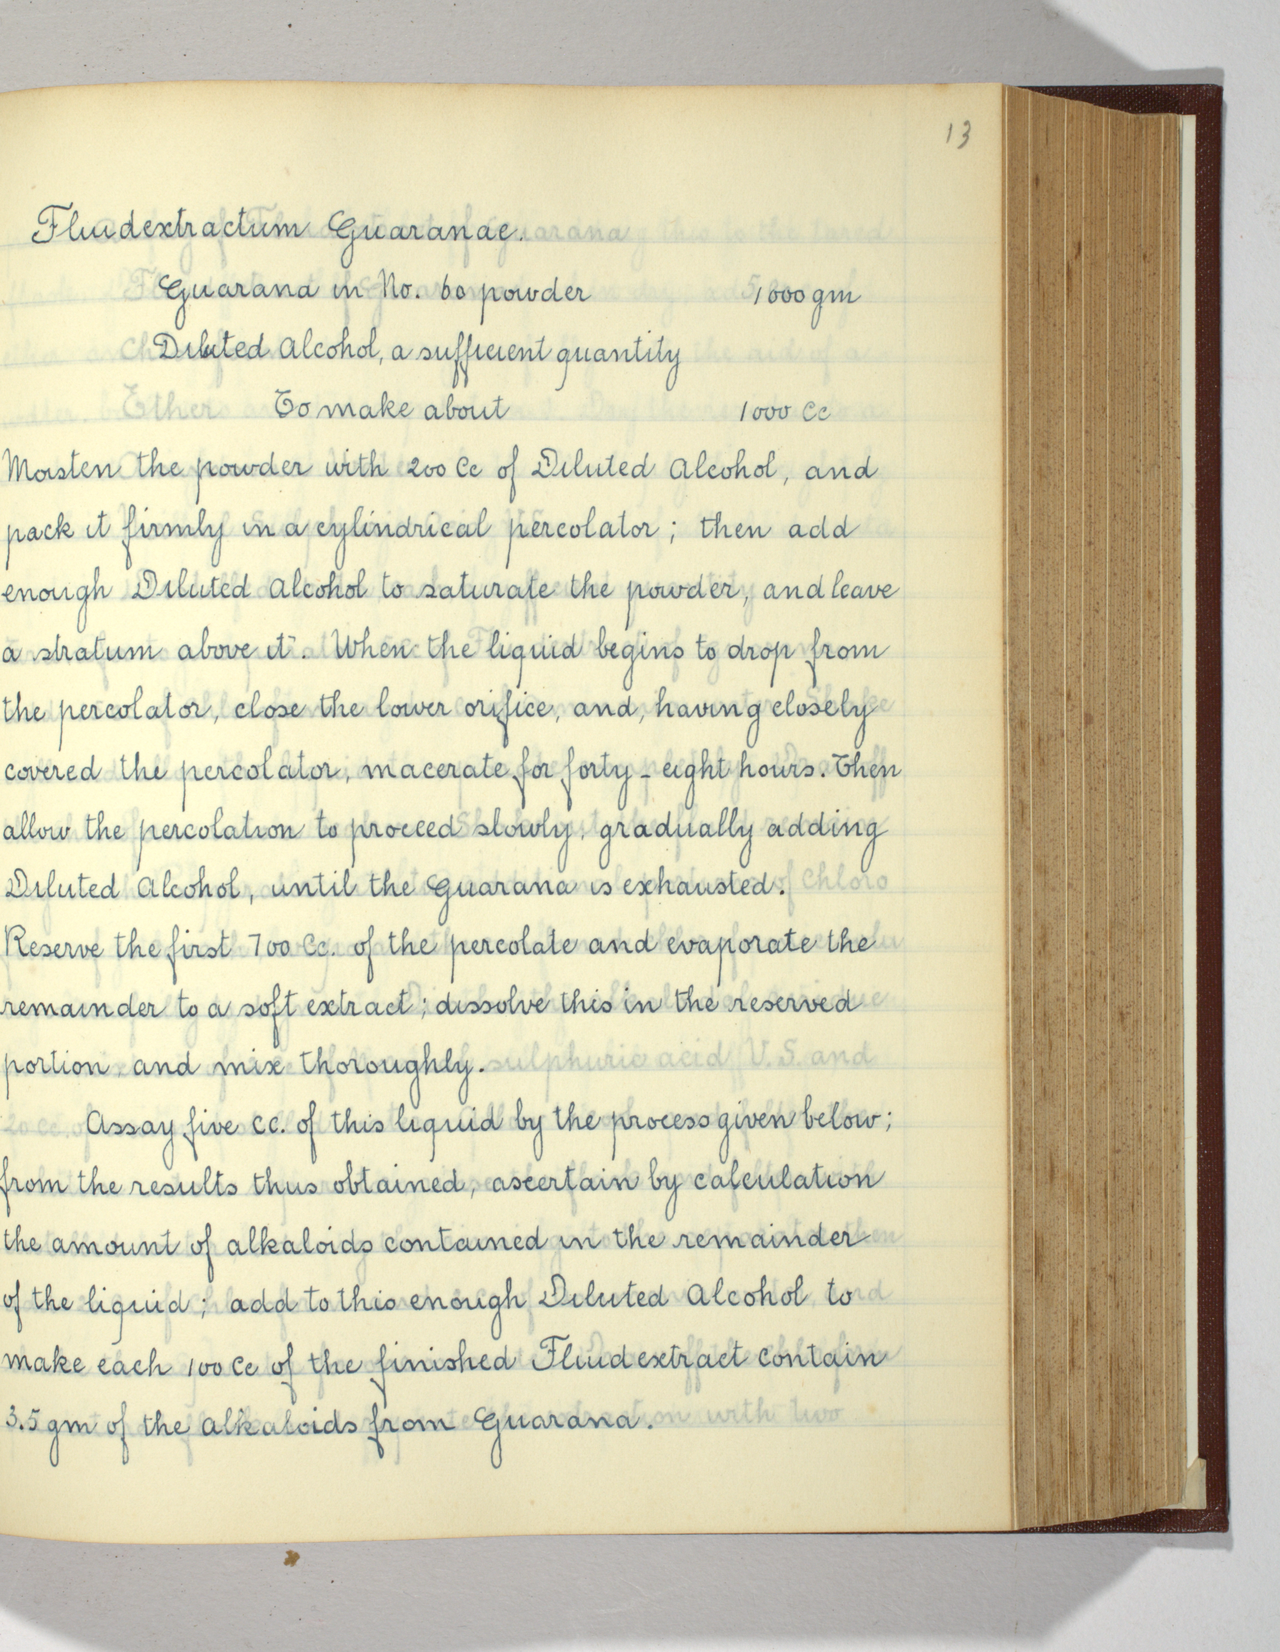 13
Fluidextractum Guaranae.
Guarana in No. 60 powder 1000 gm
Diluted Alcohol, a sufficient quantity
To make about 1000 Cc
Moisten the powder with 200 Cc of Diluted Alcohol, and
pack it firmly in a cylindrical percolator; then add
enough Diluted Alcohol to saturate the powder, and leave
a stratum above it. When the liquid begins to drop from
the percolator, close the lower orifice, and, having closely
covered the percolator, macerate for forty-eight hours. Then
allow the percolation to proceed slowly, gradually adding
Diluted Alcohol, until the Guarana is exhausted.
Reserve the first 700 Cc. of the percolate and evaporate the
remainder to a soft extract; dissolve this in the reserved
portion, and mix thoroughly.
Assay five cc. of this liquid by the process given below;
from the results thus obtained, ascertain by calculation
the amount of alkaloids contained in the remainder
of the liquid; add to this enough Diluted Alcohol to
make each 100 Cc of the finished Fluidextract contain
3.5 gm of the alkaloids from Guarana.